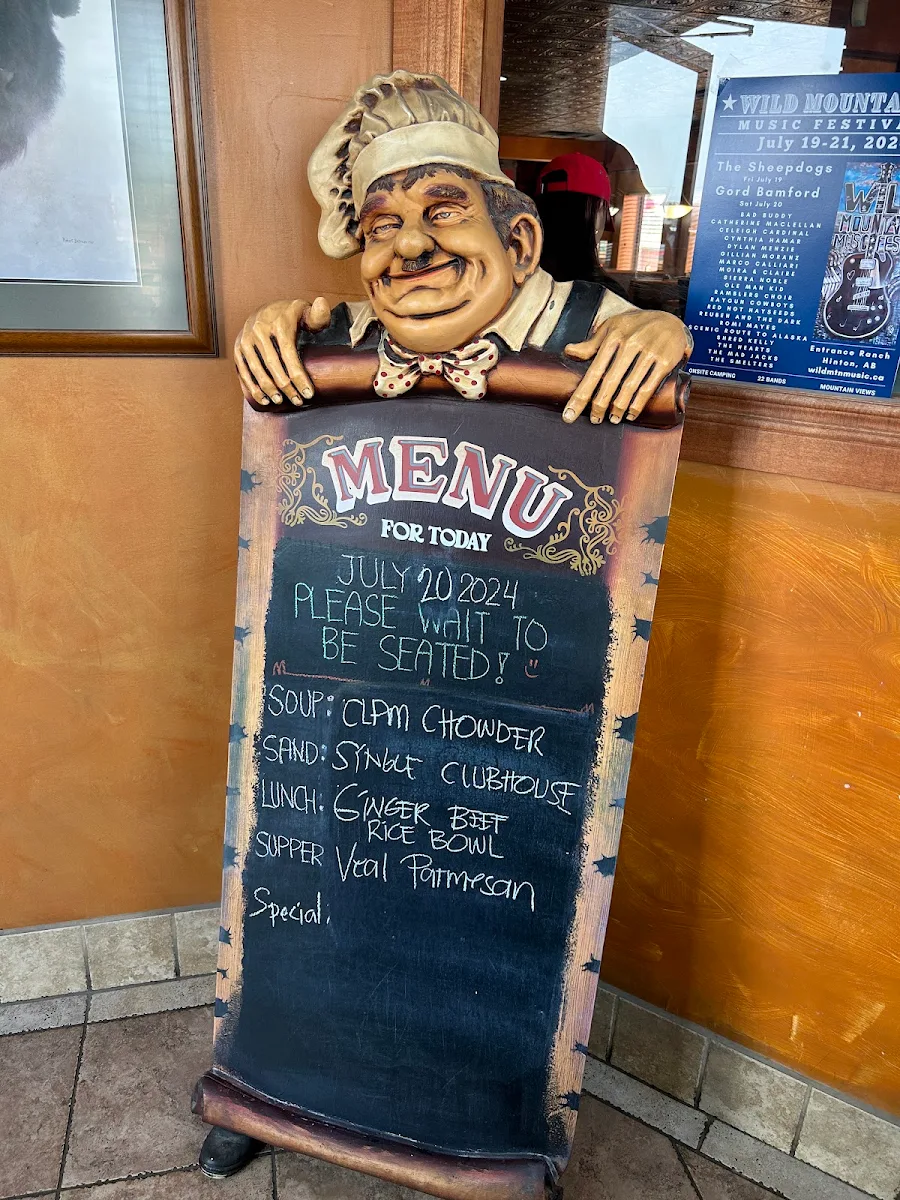 MENU
FOR TODAY
JULY 20 2024
PLEASE WAIT TO
BE SEATED!
SOUP: CLAM CHOWDER
SAND: SINGLE CLUBHOUSE
LUNCH: GINGER BEEF
RICE BOWL
SUPPER Veal Parmesan
Special:
WILD MOUNTA
MUSIC FESTIVA
July 19-21, 202
The Sheepdogs
Fri July 19
Gord Bamford
Sat July 20
BAD BUDDY
CATHERINE MACLELLAN
CELEIGH CARDINAL
CYNTHIA HAMAR
DYLAN MENZIE
GILLIAN MORANZ
MARCO CALLIARI
MOIRA & CLAIRE
SIERRA NOBLE
OLE MAN KID
RAMBLERS CHOIR
RAYGUN COWBOYS
RED HOT HAYSEEDS
REUBEN AND THE DARK
ROMI MAYES
SCENIC ROUTE TO ALASKA
SHRED KELLY
THE HEARTS
THE MAD JACKS
THE SMELTERS
WIL
MOUNTA
MUSIC FES
Entrance Ranch
Hinton, AB
wildmtnmusic.ca
ONSITE CAMPING 22 BANDS MOUNTAIN VIEWS